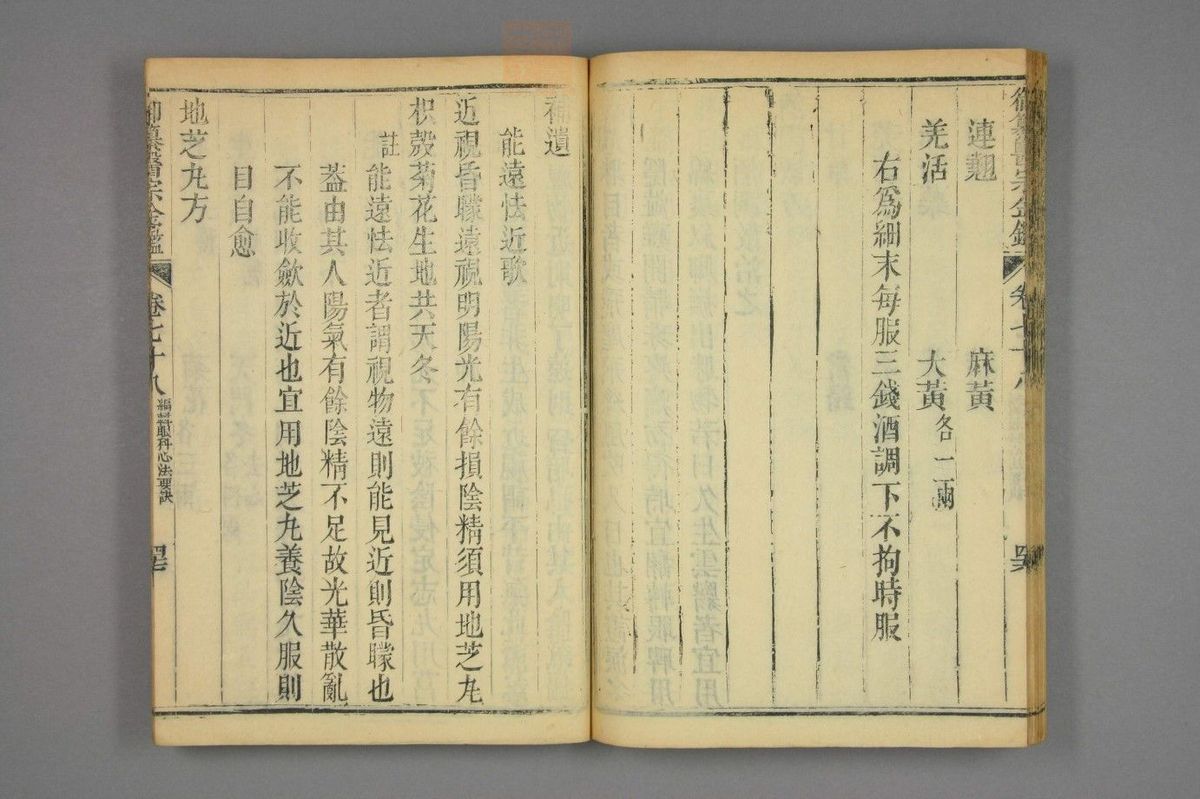 連翹　麻黃
羌活　大黃各一兩
右為細末每服三錢酒調下不拘時服
補遺
能遠怯近歌
近視昏矇遠視明陽光有餘損陰精須用地芝丸
枳殼菊花生地共天冬
註能遠怯近者謂視物遠則能見近則昏矇也
蓋由其人陽氣有餘陰精不足故光華散亂
不能收斂於近也宜用地芝丸養陰久服則
目自愈
地芝丸方
御纂醫宗金鑑　卷七十八　編輯眼科心法要訣